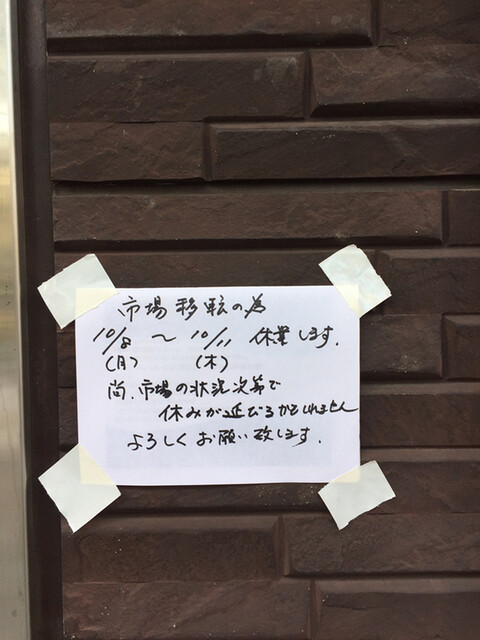 市場移転の為
10/8 〜 10/11 休業します.
(月) (木)
尚.市場の状況次第で
休みが延びるかもしれません
よろしくお願い致します.